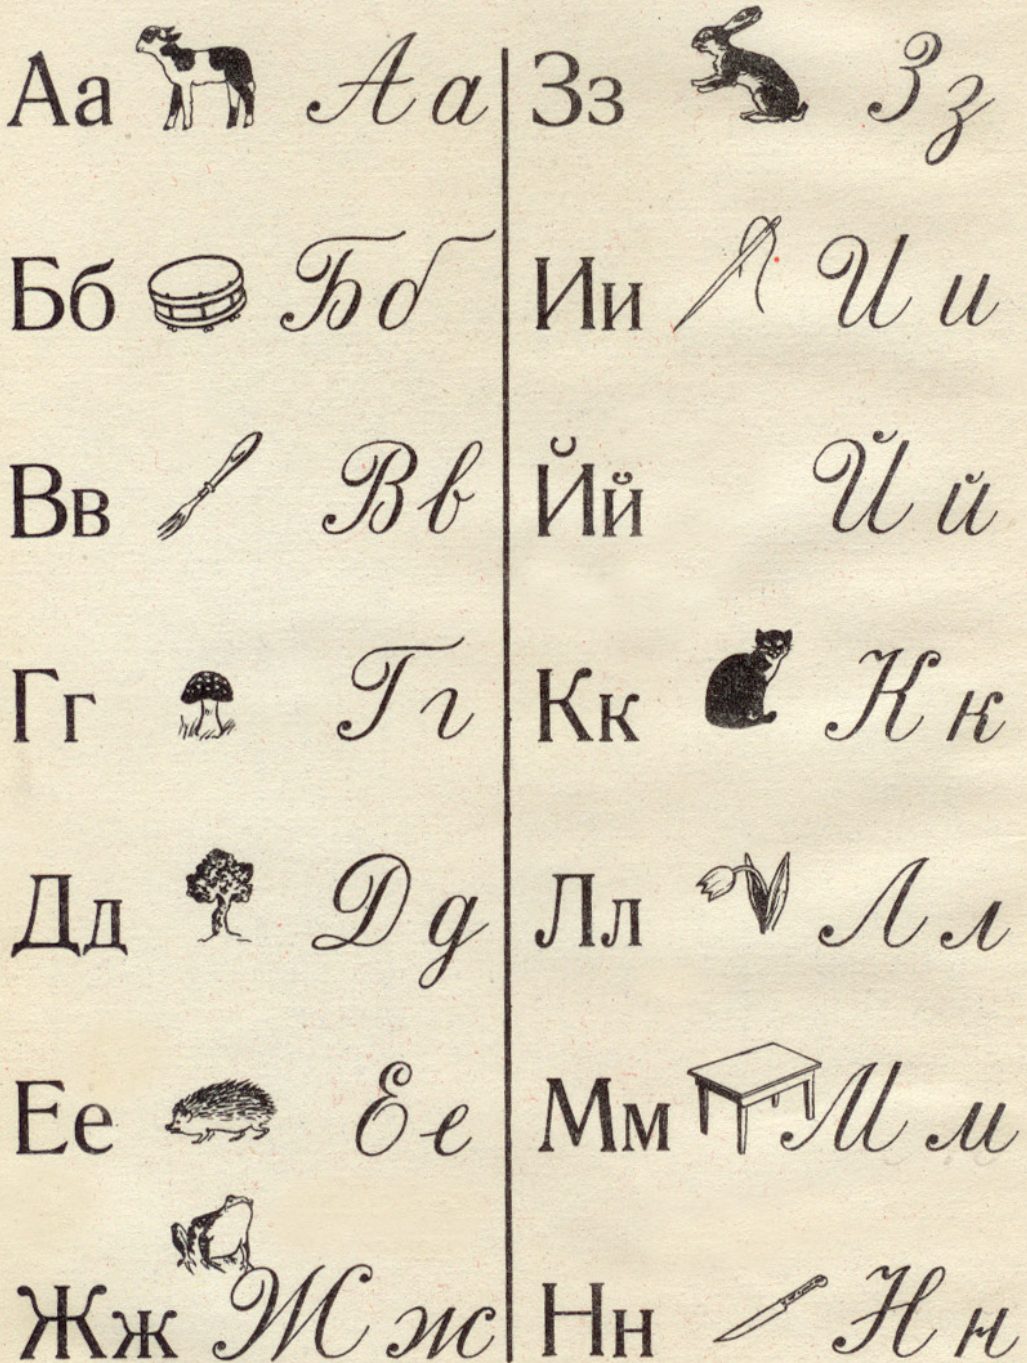 Аа Аа
Бб Бб
Вв Вв
Гг Гг
Дд Дд
Ее Ее
Жж Жж
Зз Зз
Ии Ии
Йй Йй
Кк Кк
Лл Лл
Мм Мм
Нн Нн